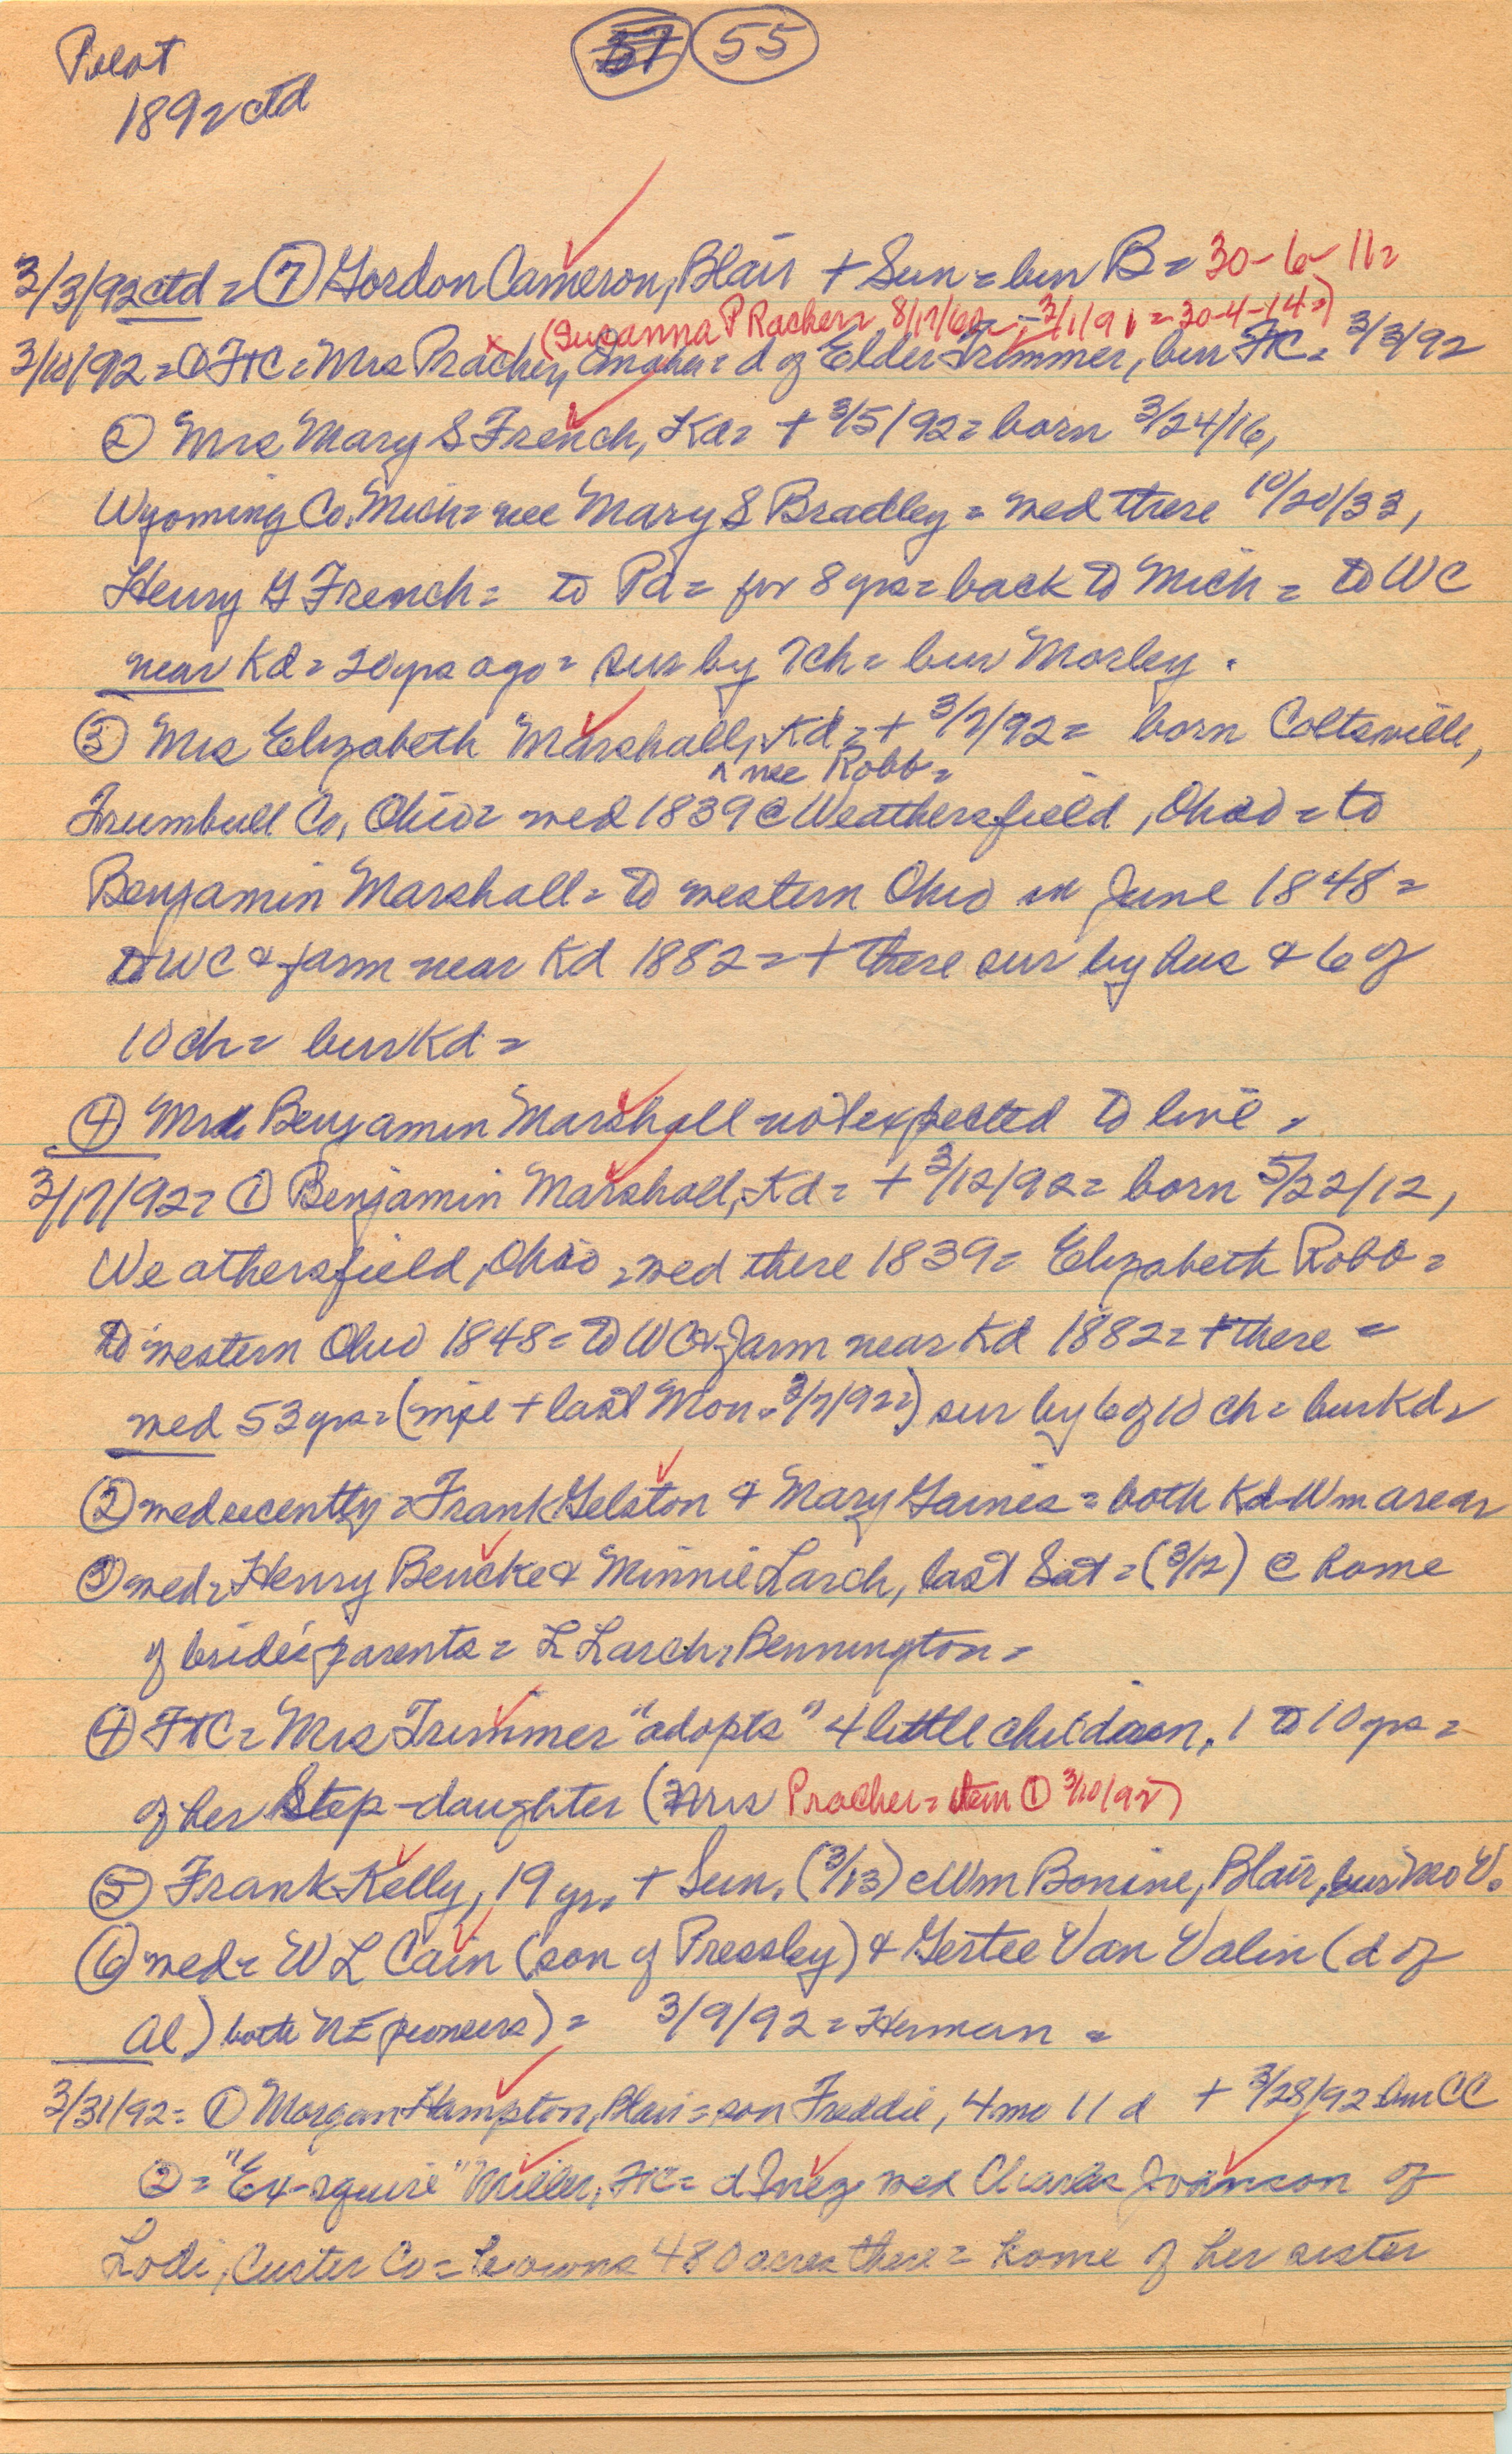 Pilot
1892 ctd
57 55
3/3/92 ctd = ⑦ Gordon Cameron, Blair + Sun = bur B = 30-6-11=
x (Susanna P Racher 8/17/60 - 3/1/91 = 30-4-14=)
3/10/92 = ① FtC = Mrs Pracher, Omaha = d of Elder Trimmer, bur FtC = 3/3/92
② Mrs Mary S French, Kd = + 3/5/92 = born 3/24/16,
Wyoming Co. Mich = nee Mary S Bradley = wed there 10/20/33,
Henry G French = to Pa = for 8 yrs = back to Mich = to WC
near Kd = 20 yrs ago = sur by 7 ch = bur Morley.
③ Mrs Elizabeth Marshall, Kd = + 3/7/92 = born Coltsville,
^ nee Robb =
Trumbull Co, Ohio = wed 1839 @ Weathersfield, Ohio = to
Benjamin Marshall = to western Ohio in June 1848 =
to WC & farm near Kd 1882 = + there sur by hus & 6 of
10 ch = bur Kd =
④ Mr Benjamin Marshall not expected to live =
3/17/92 = ① Benjamin Marshall, Kd = + 3/12/92 = born 5/22/12,
Weathersfield, Ohio = wed there 1839 = Elizabeth Robb =
to western Ohio 1848 = to WC & farm near Kd 1882 = + there =
wed 53 yrs = (wife + last Mon = 3/7/92=) sur by 6 of 10 ch = bur Kd =
② wed recently = Frank Gelston & Mary Gaines = both Kd-Wm area=
③ wed = Henry Bencke & Minnie Larch, last Sat = (3/12) @ home
of bride's parents = L Larch, Bennington =
④ FtC = Mrs Trimmer "adopts" 4 little children, 1 to 10 yrs =
of her Step-daughter (Mrs Pracher = item ① 3/10/92)
⑤ Frank Kelly, 19 yr, + Sun, (3/13) @ Wm Bonine, Blair, bur Mo V.
⑥ wed = W L Cain (son of Pressley) & Gertee Van Valin (d of
Al) both NE pioneers) = 3/9/92 = Herman =
3/31/92 = ① Morgan Hampton, Blair = son Freddie, 4 mo 11 d + 3/28/92 bur CC
② = "Ex-squire" Miller, FtC = d Inez wed Charles Johnson of
Lodi, Custer Co = he owns 480 acres there = home of her sister